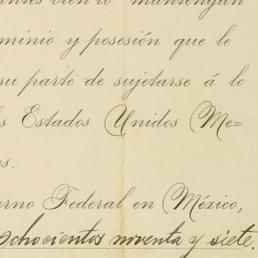 bien lo mantengan
minio y posesión que le
su parte de sujetarse á lo
Estados Unidos Me=
os.
erno Federal en México,
ochocientos noventa y siete.